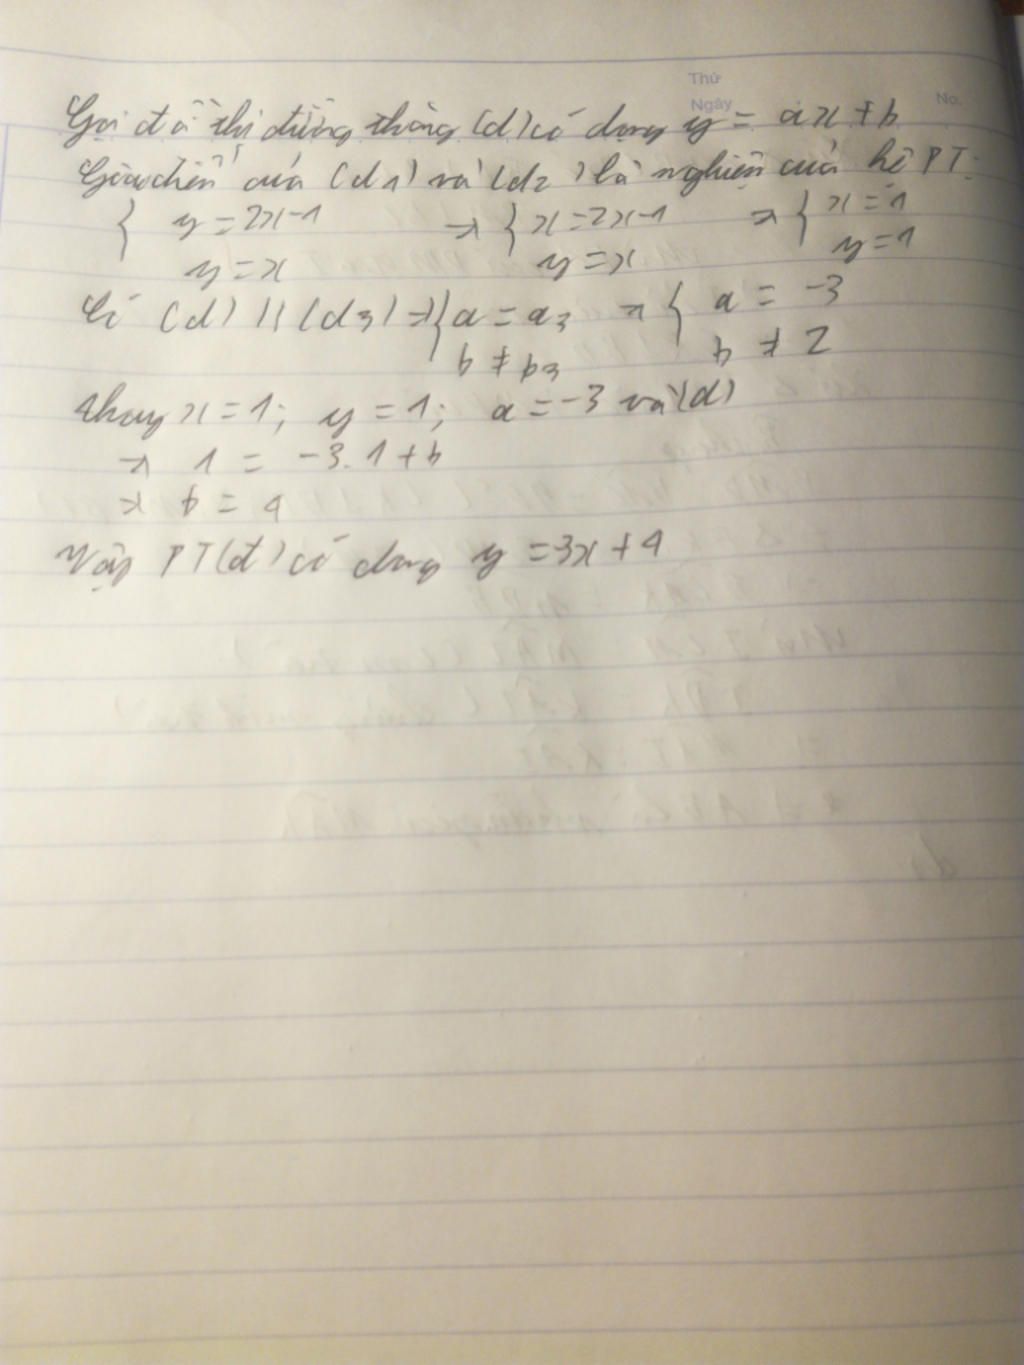 Thứ
Ngày
No.
Gọi đồ thị đường thẳng (d) có dạng y = ax + b
Giao điểm của (d1) và (d2) là nghiệm của hệ PT:
{ y = 2x-1 → { x = 2x-1 → { x = 1
y = x y = x y = 1
Có (d) // (d3) → { a = a3 → { a = -3
b ≠ b3 b ≠ 2
Thay x = 1; y = 1; a = -3 và (d)
→ 1 = -3.1 + b
→ b = 4
Vậy PT (đ) có dạng y = 3x + 4